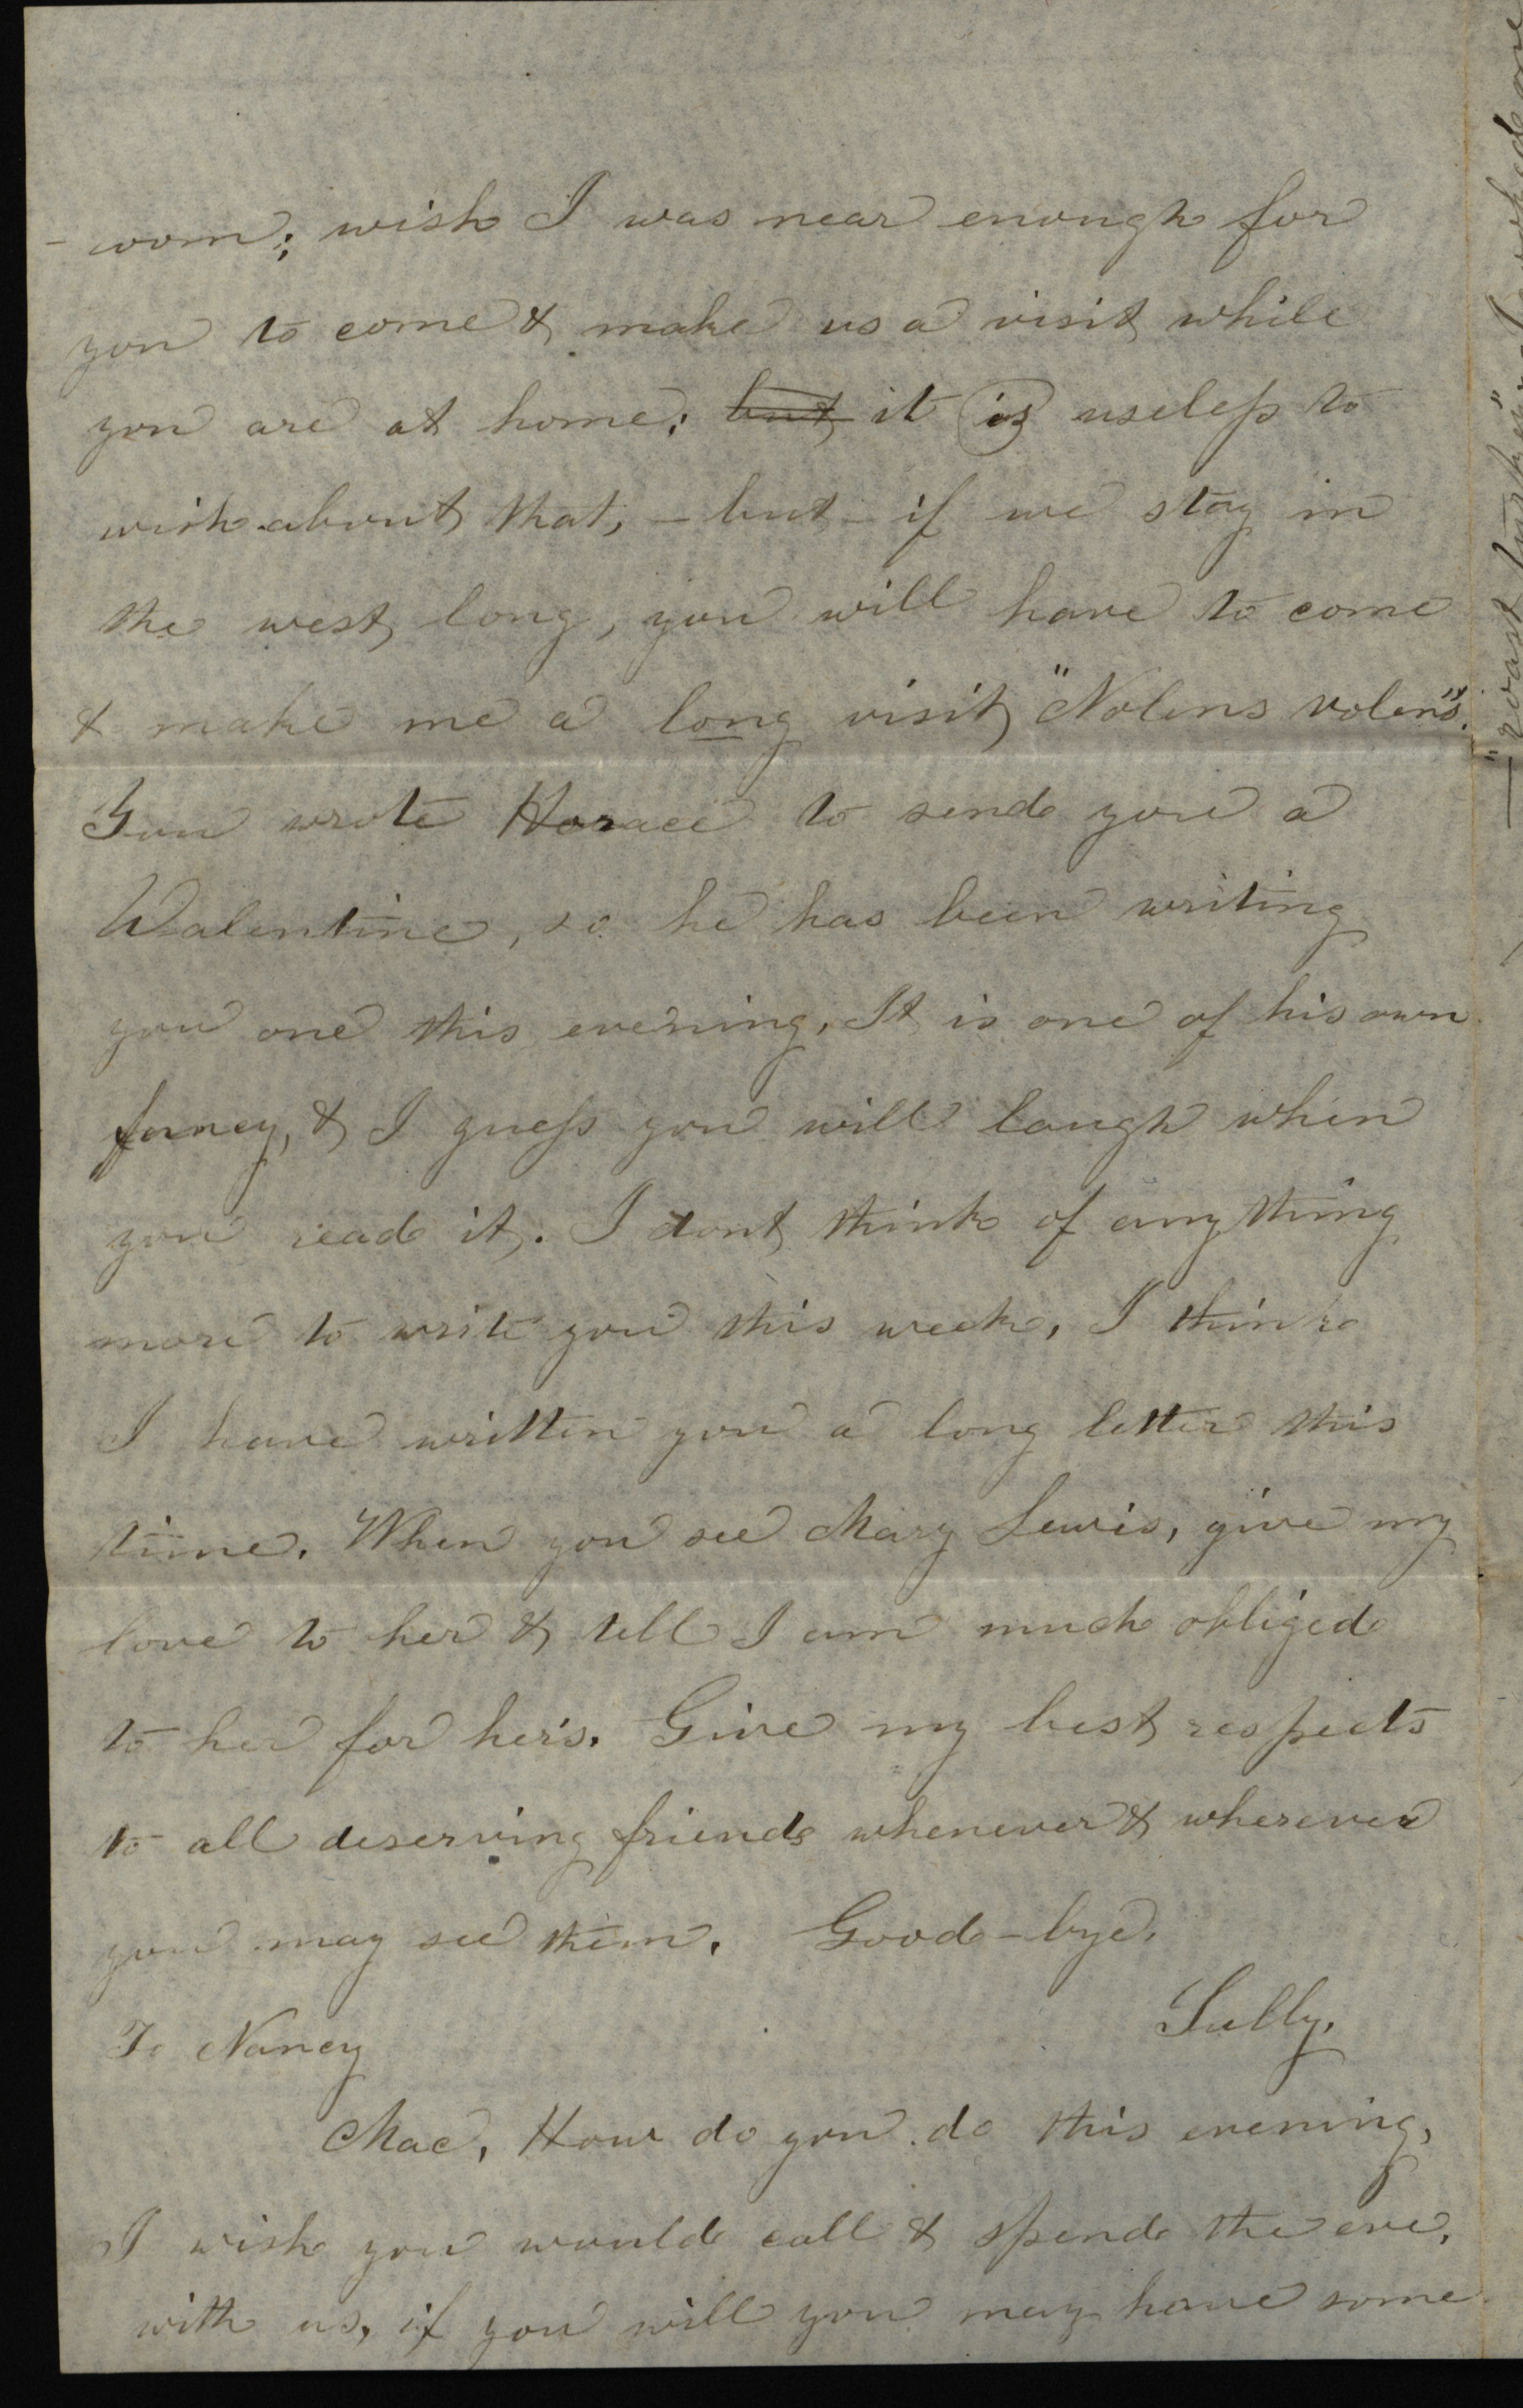 - oom; wish I was near enough for
you to come & make us a visit while
you are at home; but it is useless to
wish about that, - but - if we stay in
the west, long, you will have to come
& make me a long visit "Nolens volens".
You wrote Horace to send you a
Valentine, so he has been writing
you one this evening. It is one of his own
fancy, & I guess you will laugh when
you read it. I dont think of any thing
more to write you this week, I think
I have written you a long letter this
time. When you see Mary Lewis, give my
love to her & tell I am much obliged
to her for hers. Give my best respects
to all deserving friends whenever & wherever
you may see them. Good-bye.
Sully.
To Nancy
Mac, How do you do this evening,
I wish you would call & spend the eve,
with us, if you will you may have some
"roast turkey"